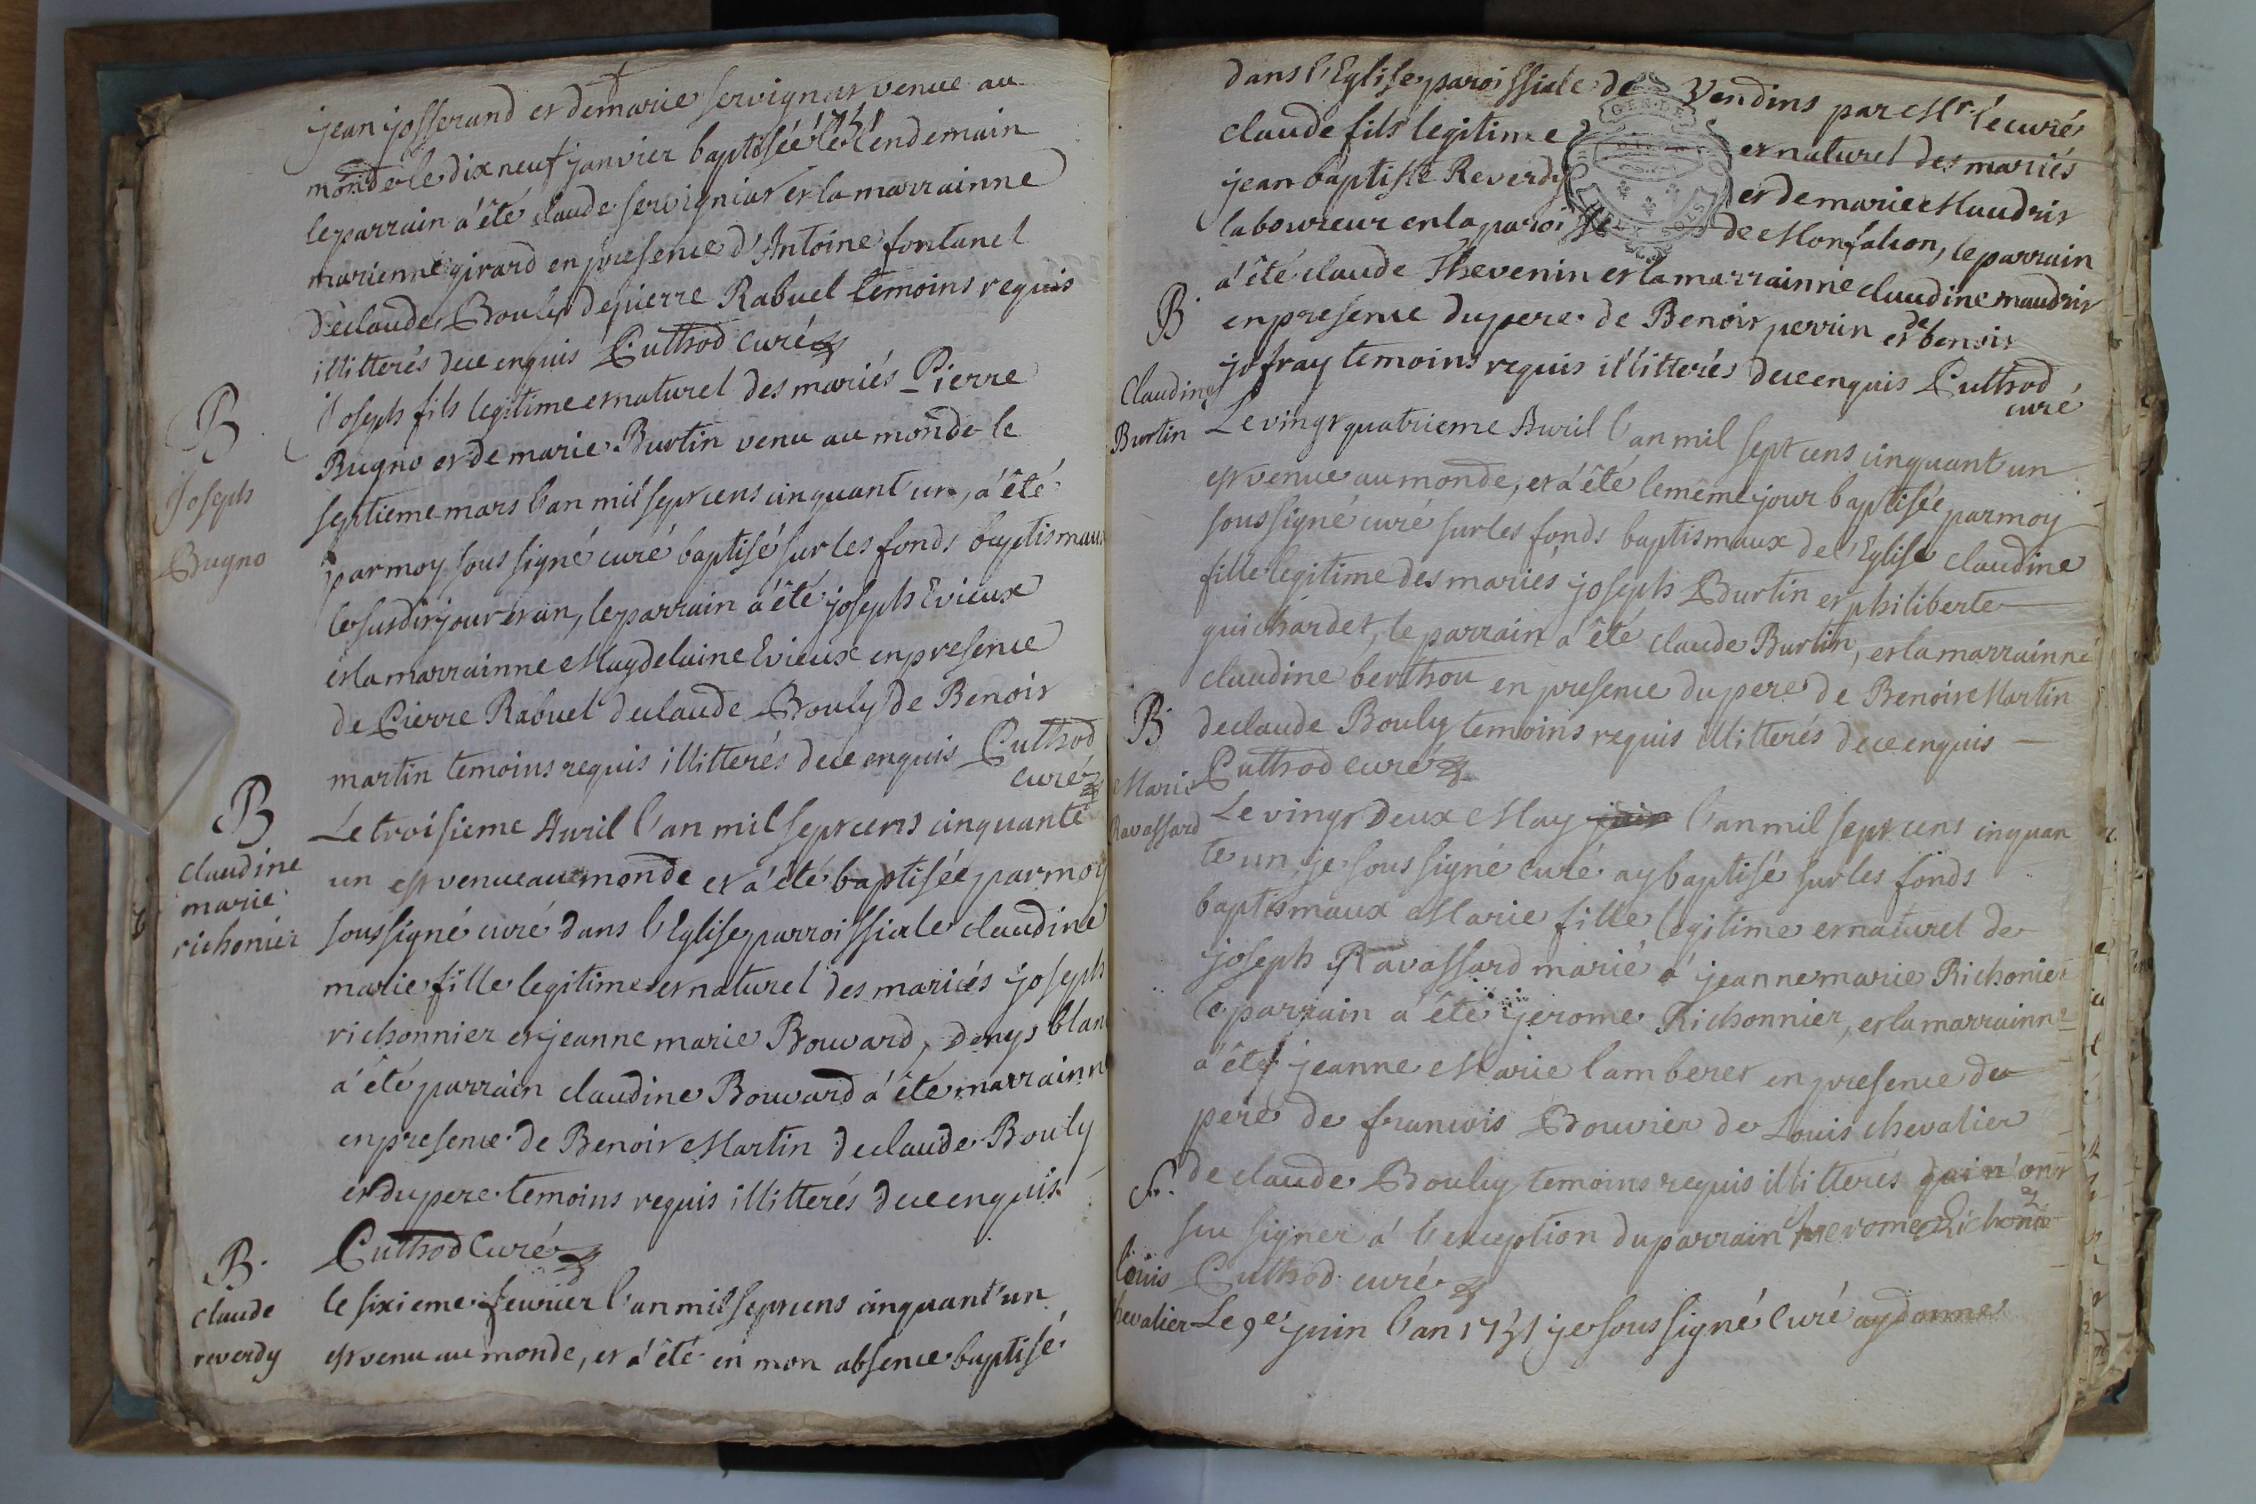 jean josserand et de marie servignat venue au
monde le dix neuf janvier 1751 baptisée le lendemain
le parrain a été claude servigniat et la marrainne
marienne girard en presence d'Antoine fontanel
de claude Bouly de pierre Rabuel temoins requis
illitterés de ce enquis Cuthod curé
B
Joseph
Bugno
Joseph fils legitime et naturel des mariés Pierre
Bugno et de marie Burtin venu au monde le
septieme mars l'an mil sept cens cinquant un, a été
par moy sous signé curé baptisé sur les fonds baptismaux
le susdit jour et an, le parrain a été joseph Evieux
et la marrainne Magdelaine Evieux en presence
de Pierre Rabuel de claude Bouly de Benoit
martin temoins requis illitterés de ce enquis Cuthod
curé
B
claudine
marie
richonier
Le troisieme Avril l'an mil sept cens cinquante
un est venue au monde et a été baptisée par moy
soussigné curé dans l'Eglise parroissiale claudine
marie fille legitime et naturel des mariés joseph
richonnier et jeanne marie Bouvard, denys blanc
a été parrain claudine Bouvard a été marrainne
en presence de Benoit Martin de claude Bouly
et du pere temoins requis illitterés de ce enquis
Cuthod Curé
B.
claude
reverdy
le sixieme fevrier l'an mil sept cens cinquant'un
est venu au monde, et a été en mon absence baptisé
dans l'Eglise paroissiale de Vendins par Mr le curé
claude fils legitime et naturel des mariés
GEN. DE
DEUX SOLS
jean baptiste Reverdy et de marie Maudrit
laboureur en la paroisse de Monfalcon, le parrain
a été claude Thevenin et la marrainne claudine maudrit
en presence du pere de Benoit perrin et de benoit
jofray temoins requis illitterés de ce enquis Cuthod
curé
B
Claudine
Burtin
Le vingt quatrieme Avril l'an mil sept cens cinquant un
est venue au monde, et a été le même jour baptisée par moy
soussigné curé sur les fonds baptismaux de l'Eglise claudine
fille legitime des mariés joseph Burtin et philiberte
guichardet, le parrain a été claude Burtin, et la marrainne
claudine berthou en presence du pere de Benoit Martin
de claude Bouly temoins requis illitterés de ce enquis
Cuthod curé
B
Marie
Ravassard
Le vingt deux May juin l'an mil sept cens cinquan
te un, je sous signé curé ay baptisé sur les fonds
baptismaux Marie fille legitime et naturel de
joseph Ravassard marié a jeanne marie Richonier
le parrain a été jerome Richonnier, et la marrainne
a été jeanne Marie lamberet en presence du
pere de francois Bouvier de Louis chevalier
de claude Bouly temoins requis illitterés qui n'ont
scu signer a l'exception du parrain
Cuthod curé
S.
louis
chevalier
Le 9e juin l'an 1751 je sous signé Curé ay donné